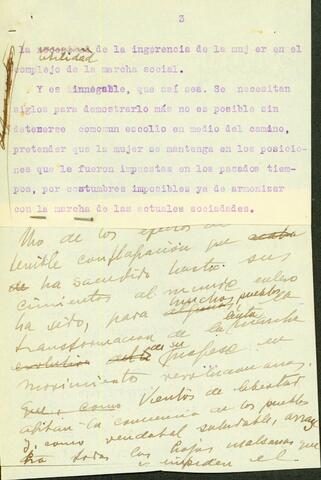 3
la de la ingerencia de la mujer en el
utilidad
complejo de la marcha social.
Y es innegable, que así sea. Se necesitan
siglos para demostrarlo más no es posible sin
detenerse comoun escollo en medio del camino,
pretender que la mujer se mantenga en las posicio-
nes que le fueron impuestas en los pasados tiem-
pos, por costumbres imposibles ya de armonizar
con la marcha de las actuales sociadades.
Uno de los efectos de
terrible conflagración que
ha sacudido hasta sus
cimientos al mundo entero
muchos pueblos
ha sido, para la
lenta
transformación de la marcha
de su progreso en
movimiento
Vientos de libertad
agitan la conciencia de los pueblos
y, como vendabal saludable,
todas las hojas malsanas que
impiden el